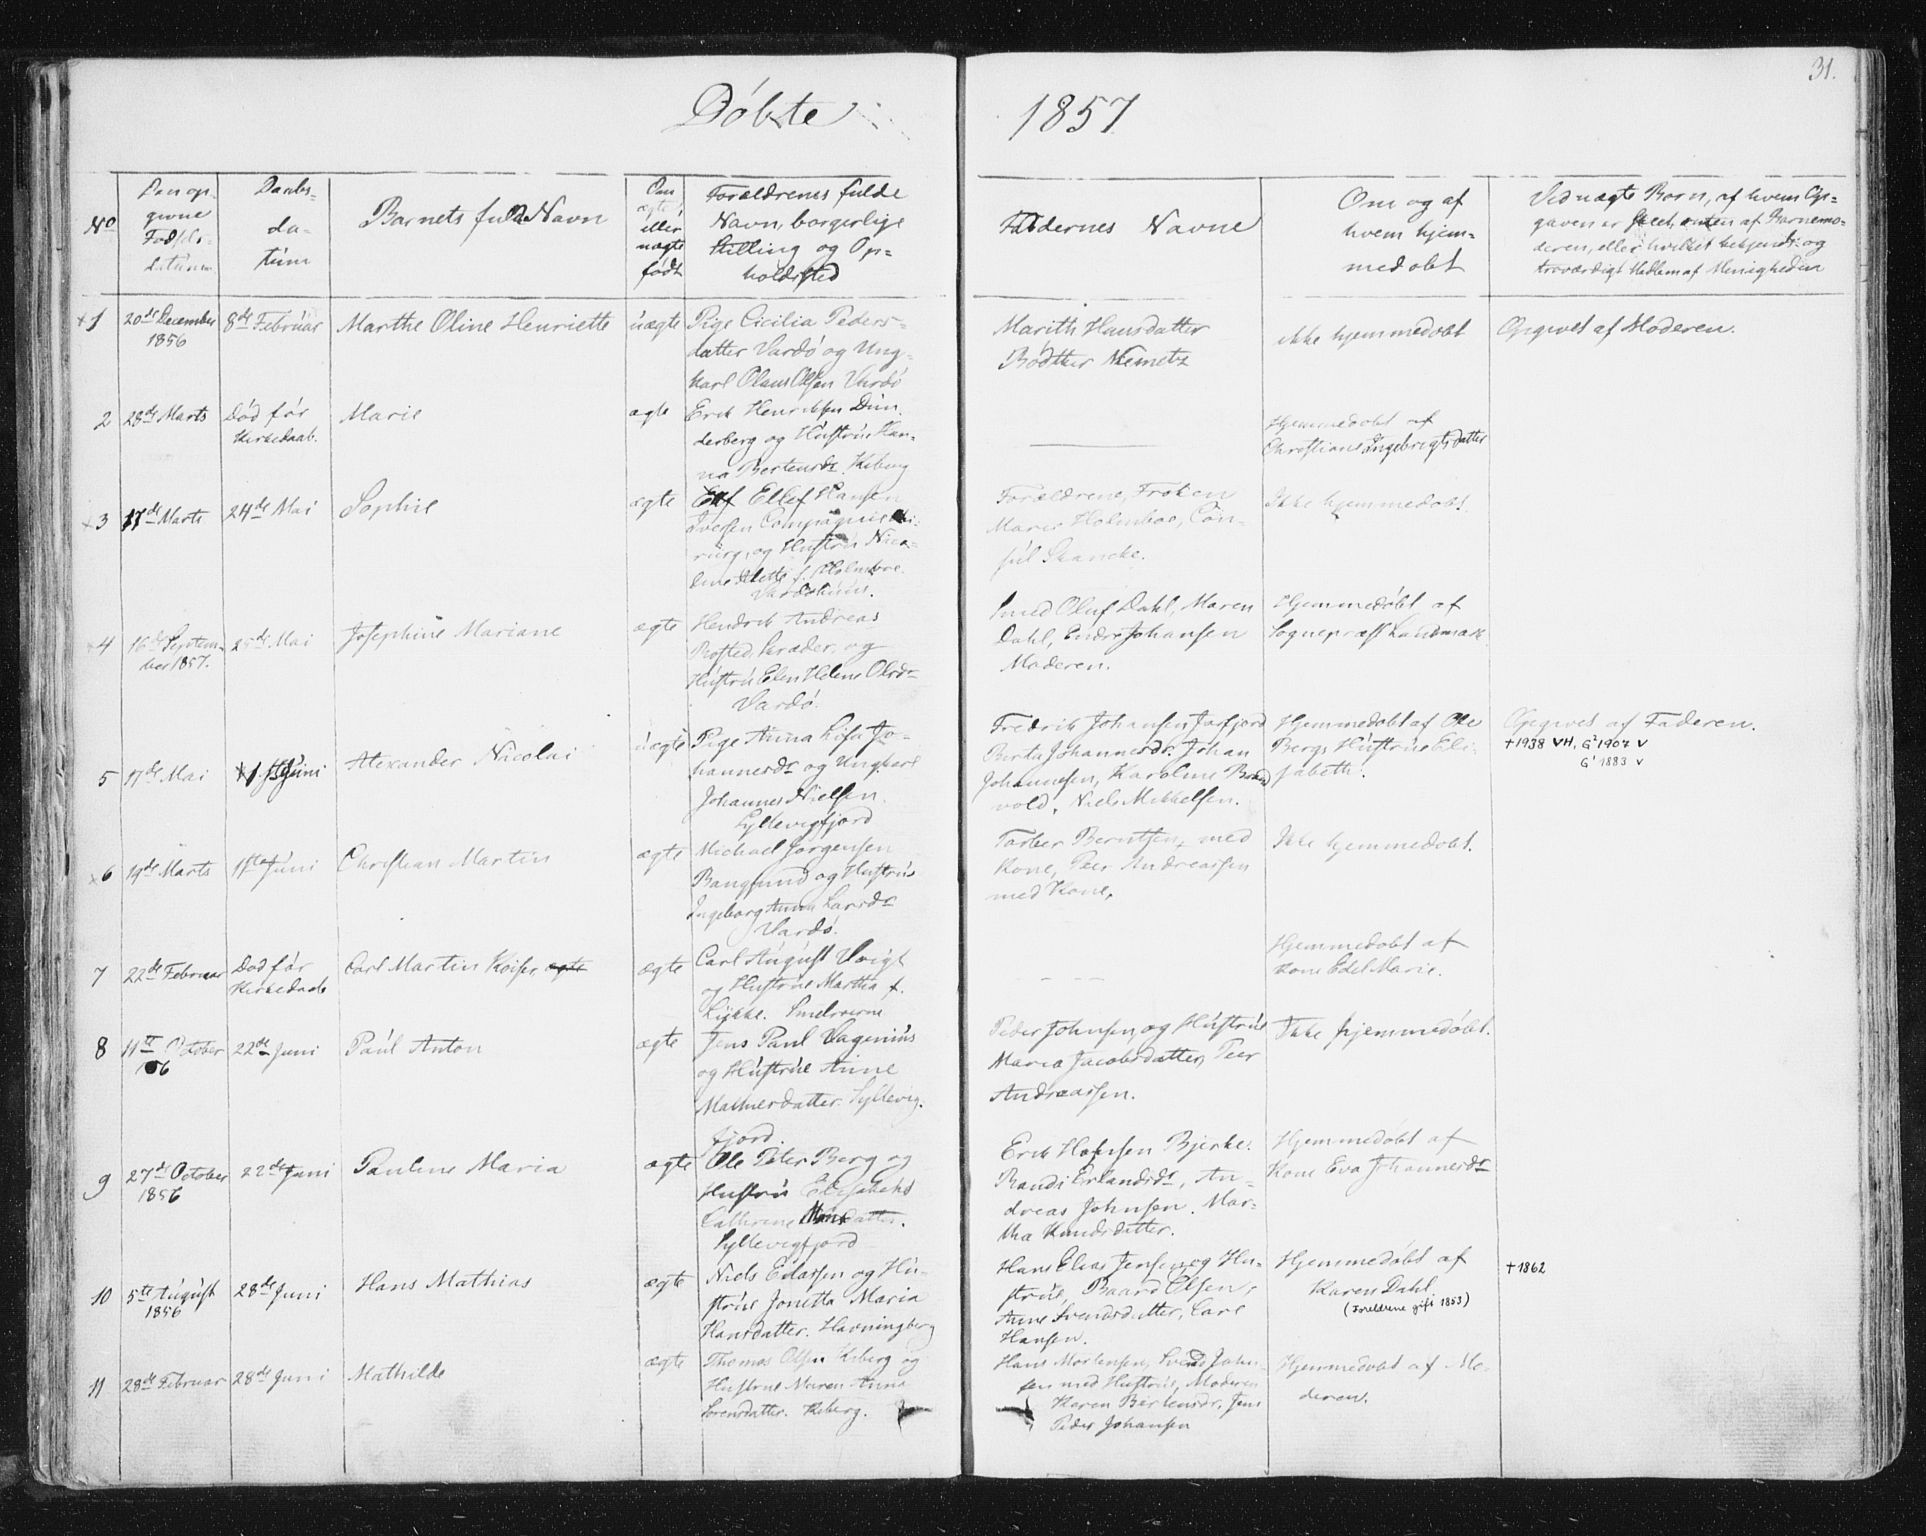 31.
Döbte 1857
No
Den op-
givne
Födsels-
datum
Daabs-
da-
tum
Barnets fulde Navn
Om
ægte
eller
uægte
födt
Forældrenes fulde
Navn, borgerlige
Stilling og Op-
holdssted
Faddernes Navne
Om og af
hvem hjem-
medøbt
Ved uægte Børn, af hvem Op-
gaven er skeet, enten af Barnemo-
deren, eller hvilket bekjendt og
troværdigt Medlem af Menigheden
+1
20de December
1856
8de Februar
Marthe Oline Henriette
uægte
Pige Cicilia Peders-
datter Vardö og Ung-
karl Olaus Olsen Vardö
Marith Hansdatter
Bödtker Nemetz
ikke hjemmedøbt
Opgivet af Moderen.
2
28de Marts
Död för
Kirkedaab.
Marie
ægte
Erik Henriksen Dun-
derberg og Hustrue Han-
na Bertensdr. Kiberg
Hjemmedøbt af
Christiane Ingebrigtsdatter
+3
17de Marts
24de Mai
Sophie
ægte
Ellef Hansen
Iversen Compagniechi-
rurg, og Hustrue Nico-
line Alette f. Holmboe
Vardöhuus.
Forældrene, Fröken
Marie Holmboe, Con-
sul Skancke.
Ikke hjemmedøbt
+4
16de Septem-
ber 1857.
25de Mai
Josephine Mariane
ægte
Hendrik Andreas
Kræder, og
Hustrue Elen Helene Olsdr
Vardö.
Smed Oluf Dahl, Maren
Dahl, Endre Johansen
Moderen.
Hjemmedöbt af
Sognepræst Landmark
5
17de Mai
1ste Juni
Alexander Nicolai
uægte
Pige Anna Lisa Jo-
hannesdr og Ungkarl
Johannes Nielsen.
Syltevigfjord
Fredrik Johansen Jarfjord
Berta Johannesdr. Johan
Johannesen, Karoline Brand
vold, Niels Mikkelsen.
Hjemmedøbt af Ole
Bergs Hustrue Eli-
sabeth.
Opgivet af Faderen.
†1938 VH, G' 1907 V
G' 1883 V
+6
19de Marts
1ste Juni
Christian Martin
ægte
Michael Jörgensen
Bangsund og Hustrue
Ingeborg Anna Larsdr
Vardö.
Torber Berntsen, med
Kone, Peer Andreassen
med Kone,
Ikke hjemmedøbt.
7
22de Februar
Död för
Kirkedaab
Carl Martin Keiser ægte
ægte
Carl August Voigt
og Hustrue Martha f.
Lykke. Smelrorerne
Hjemmedøbt af
Kone Edel Marie.
8
11te October
56
22de Juni
Paul Anton
ægte
Jens Paul Vagenius
og Hustrue Anne
Mathiesdatter Syltevig-
fjord.
Peder Johnsen, og Hustrue
Maria Jacobsdatter, Peer
Andreassen.
Ikke hjemmedøbt.
9
27de October
1856
22de Juni
Pauline Maria
ægte
Ole Peter Berg og
Hustrue Elisabeth
Cathrine Monsdatter.
Syltevigfjord
Erik Hansen Bjerke.
Randi Erlandsdr, An-
dreas Johnsen. Mar-
tha Knudsdatter.
Hjemmedøbt af
Kone Eva Johannesdr
10
5te August
1856
28de Juni
Hans Mathias
ægte
Niels Eliassen og Hu-
strue Jonetta Maria
Hansdatter. Havningberg
Hans Elias Jensen og Hu-
strue, Baard Olsen,
Anne Svendsdatter, Carl
Hansen.
Hjemmedøbt af
Karen Dahl
(Foreldrene gift 1853)
†1862
11
28de Februar
28de Juni
Mathilde
ægte
Thomas Olsen Kiberg og
Hustrue Maren Anna
Sörensdatter. Kiberg.
Hans Mortensen, Svend John-
sen med Hustrue, Moderen
Karen Bertensdr, Jens
Peder Johansen
Hjemmedøbt af Mo-
deren.